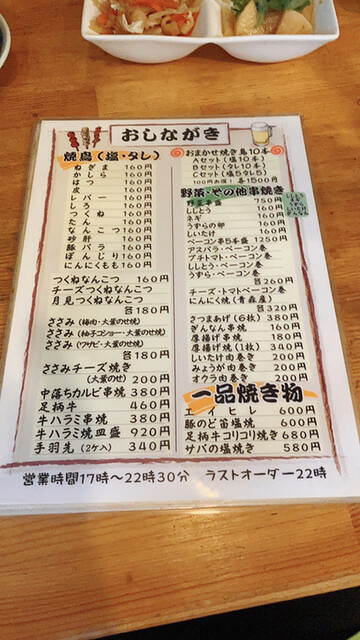 おしながき
焼鳥(塩・タレ)
ねぎま 160円
かしら 160円
はつ 160円
皮 160円
レバー 160円
しろ 160円
つくね 160円
たん 160円
なんこつ 160円
砂肝 160円
豚バラ 160円
ぼんじり 160円
にんにくもも 160円
つくねなんこつ 160円
チーズつくねなんこつ
月見つくねなんこつ
各180円
ささみ(梅肉・大葉のせ焼)
ささみ(柚子コショー・大葉のせ焼)
ささみ(ワサビ・大葉のせ焼)
各180円
ささみチーズ焼き
(大葉のせ) 200円
中落ちカルビ串焼 380円
足柄牛 460円
牛ハラミ串焼 380円
牛ハラミ焼皿盛 920円
手羽先(2ケ入) 340円
おまかせ焼き鳥10本
Aセット(塩10本)
Bセット(タレ10本)
Cセット(塩5タレ5)
各1500円
野菜・その他串焼き
野菜串盛 750円
ししとう 160円
ネギ 160円
うずらの卵 160円
しいたけ 160円
ベーコン串5本盛 1250円
アスパラ・ベーコン巻
プチトマト・ベーコン巻
ししとう・ベーコン巻
うずら・ベーコン巻
各260円
チーズ・トマトベーコン巻
にんにく焼(青森産)
各320円
さつまあげ(6枚) 380円
ぎんなん串焼 160円
厚揚げ串焼 180円
厚揚げ焼(1枚) 340円
しいたけ肉巻き 200円
みょうが肉巻き 200円
オクラ肉巻き 200円
一品焼き物
エイヒレ 600円
豚のど笛塩焼 600円
足柄牛コリコリ焼き 680円
サバの塩焼き 580円
営業時間17時〜22時30分 ラストオーダー22時